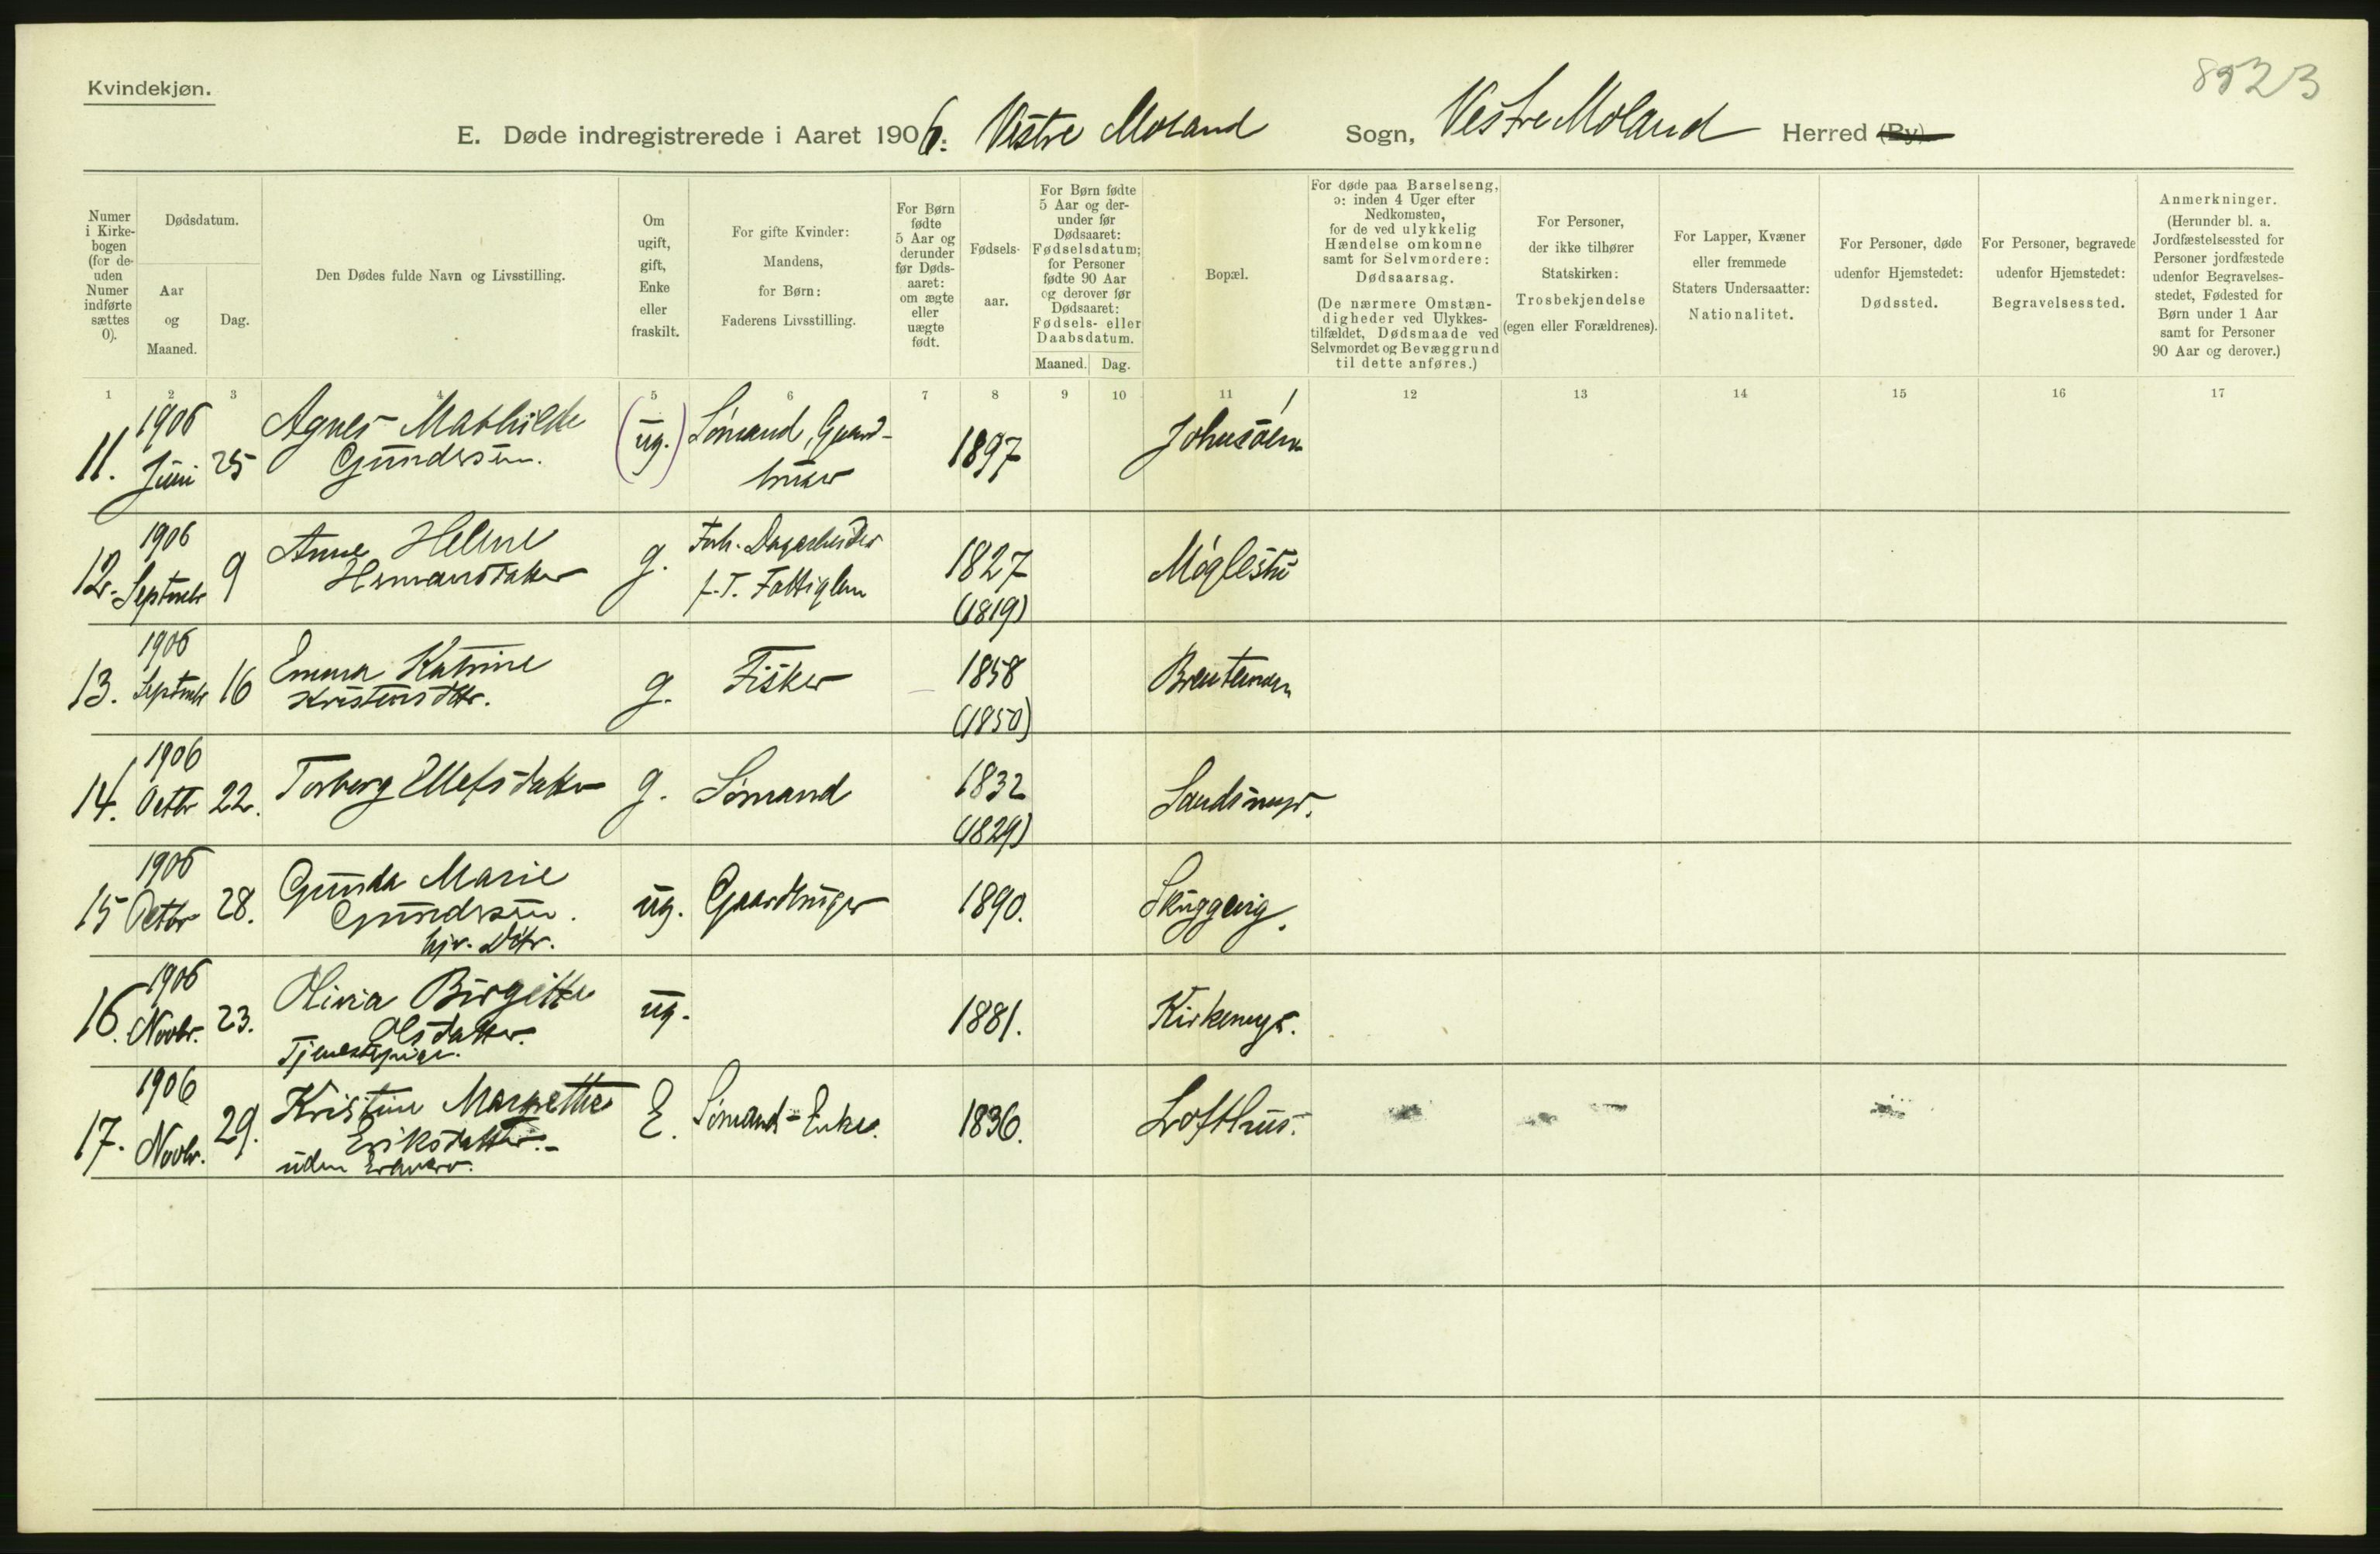 Kvindekjøn.
8523
E. Døde indregistrerede i Aaret 1906: Vestre Moland Sogn, Vestre Moland Herred (By)
Numer i Kirkebogen (for deuden Numer indførte sættes 0).
Dødsdatum.
Aar og Maaned.
Dag.
Den Dødes fulde Navn og Livsstilling.
Om ugift, gift, Enke eller fraskilt.
For gifte Kvinder: Mandens, for Børn: Faderens Livsstilling.
For Børn fødte 5 Aar og derunder før Dødsaaret: om ægte eller uægte født.
Fødselsaar.
For Børn fødte 5 Aar og derunder før Dødsaaret: Fødselsdatum; for Personer fødte 90 Aar og derover før Dødsaaret: Fødsels- eller Daabsdatum.
Maaned. Dag.
Bopæl.
For døde paa Barselseng, ɔ: inden 4 Uger efter Nedkomsten, for de ved ulykkelig Hændelse omkomne samt for Selvmordere: Dødsaarsag.
(De nærmere Omstændigheder ved Ulykkestilfældet, Dødsmaade ved Selvmordet og Bevæggrund til dette anføres.)
For Personer, der ikke tilhører Statskirken: Trosbekjendelse (egen eller Forældrenes).
For Lapper, Kvæner eller fremmede Staters Undersaatter: Nationalitet.
For Personer, døde udenfor Hjemstedet: Dødssted.
For Personer, begravede udenfor Hjemstedet: Begravelsessted.
Anmerkninger.
(Herunder bl. a. Jordfæstelsessted for Personer jordfæstede udenfor Begravelsesstedet, Fødested for Børn under 1 Aar samt for Personer 90 Aar og derover.)
1 2 3 4 5 6 7 8 9 10 11 12 13 14 15 16 17
11. 1906 Juni 25 Agnes Mathilde Gundersen. (ug.) Sømand, Gaardbruger 1897
12. 1906 Septembr 9 Anne Helene Hermansdatter g. Forh. Dagarbeider f. T. Fattiglem 1827 (1819) Møglestu
13. 1906 Septembr 16 Emma Katrine Kristensdttr. g. Fisker 1858 (1850)
14. 1906 Octbr 22. Torborg Ellefsdatter g. Sømand 1832 (1829) Sandsmyr.
15 1906 Octbr 28. Gunda Marie Gundersen. hjv. Dttr. ug. Gaardbruger 1890. Skuggevig.
16. 1906 Novbr. 23. Olivia Birgitte Olsdatter. Tjenestepige. ug. 1881. Kirkemyr.
17. 1906 Novbr. 29. Kristine Margrethe Eriksdatter.- uden Erhverv. E. Sømands-Enke. 1836. Lofthus.